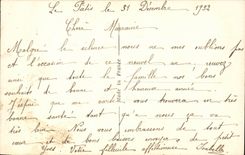 Le Pâtis le 31 Décembre 1922
Chère Marraine
Malgré le silence nous ne vous oublions pas
et l'occasion de ce nouvel an, recevez
ainsi que toute la famille nos bons
souhaits de bonne et heureuse année.
J'espère que ma carte vous trouvera en très
bonne santé tant qu'à nous ça va
très bien. Nous vous embrassons de tout
cœur et de bons baisers
Votre filleule affectionnée Isabelle
Made in France